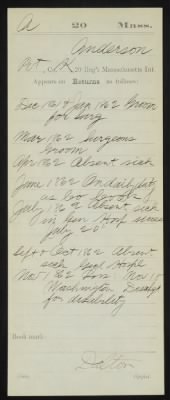 A 20 Mass.
Anderson
Pvt, Co. K, 20 Reg't Massachusetts Inf.
Appears on Returns as follows:
Dec 1861 Jan 1862 Groom
for Surg
Mar 1862 Surgeons
Groom
Apr 1862 Absent sick
June 1862 On daily duty
as Co
July 1862 Absent sick
in Gen Hosp since
July 20
Sept & Oct 1862 Absent
sick Genl Hospl
Nov 1862 Nov 15
Washington
for disability
Book mark:
Dalton
Copyist.